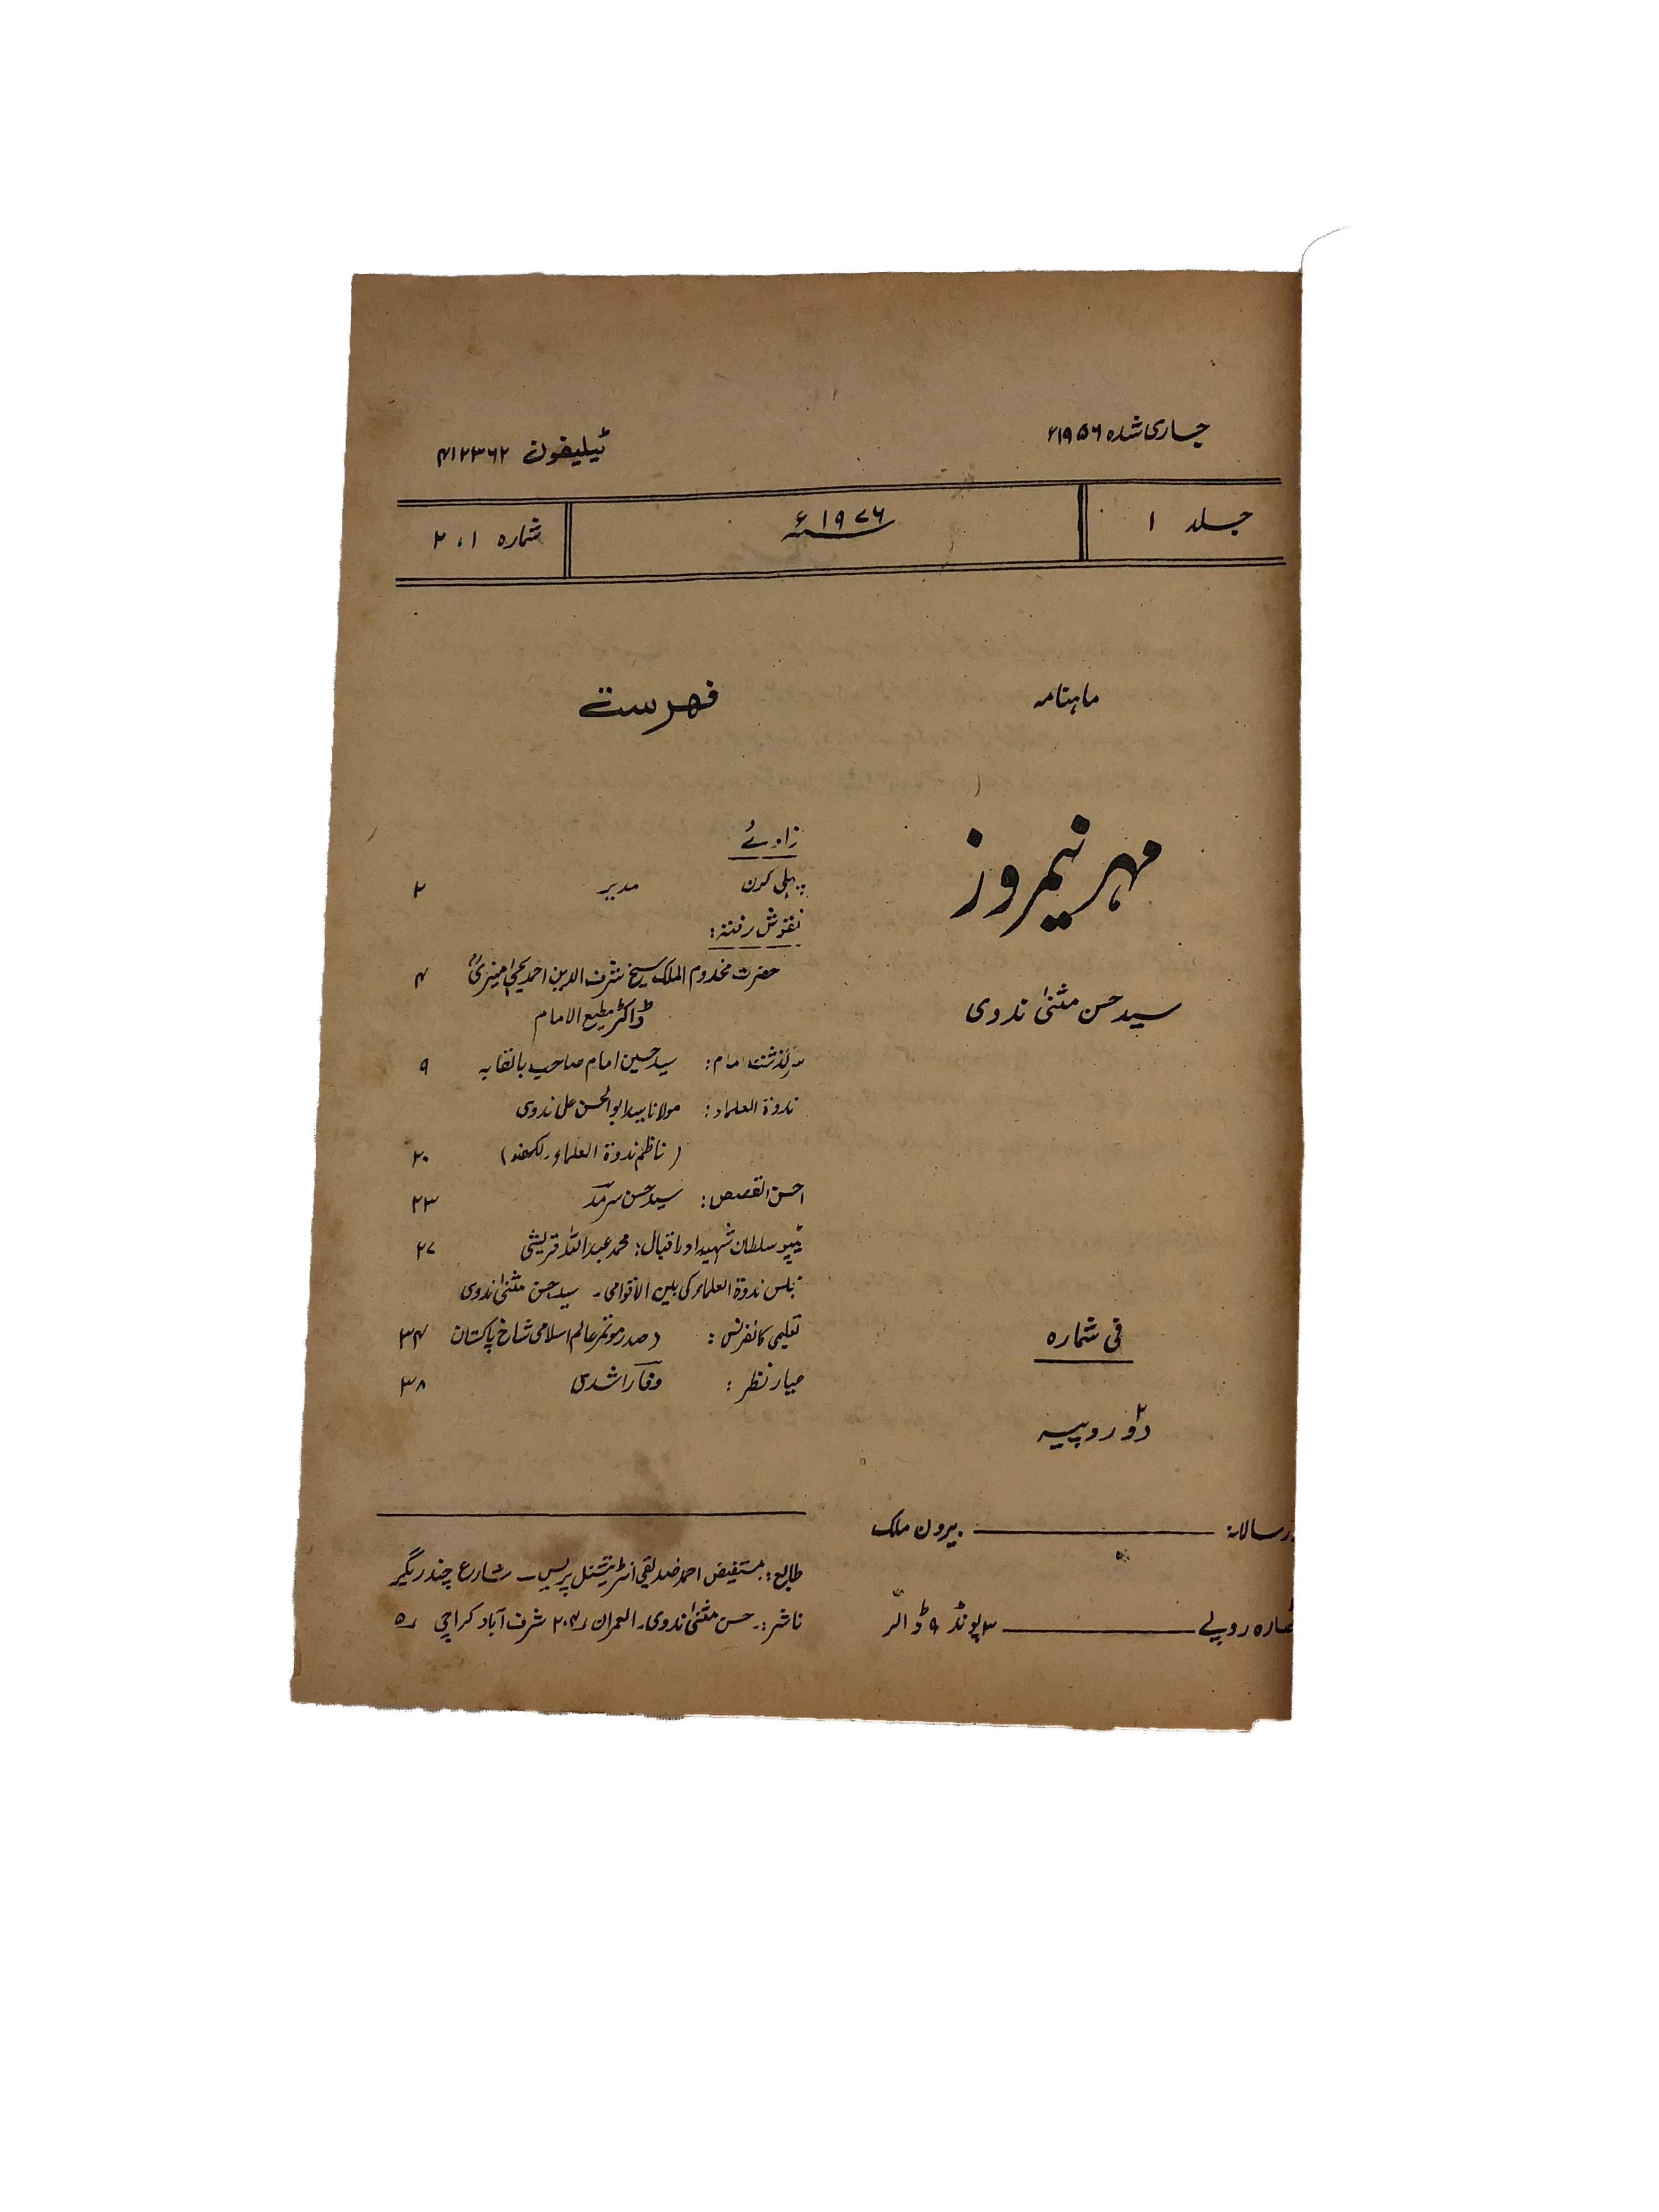 جاری شدہ ۱۹۵۶ء
ٹیلیفون ۴۱۲۳۶۲
جلد ۱
۱۹۷۶ء
شمارہ ۱، ۲
ماہنامہ
مہر نیمروز
سید حسن مثنیٰ ندوی
فی شمارہ
دو۲ روپیہ
زر سالانہ: بیرون ملک
روپے ۳ پونڈ ۹ ڈالر
فہرست
زاویے
پہلی کرن مدیر ۲
نقوش رفتہ:
حضرت مخدوم الملک شیخ شرف الدین احمد یحییٰ منیریؒ ۴
ڈاکٹر مطیع الامام
سرگذشت امام: سید حسین امام صاحب بالقابہ ۹
ندوۃ العلماء: مولانا سید ابوالحسن علی ندوی
(ناظم ندوۃ العلماء۔ لکھنؤ) ۲۰
احسن القصص: سید حسن سرمد ۲۳
ٹیپو سلطان شہید اور اقبال: محمد عبداللہ قریشی ۲۷
ندوۃ العلماء کی بین الاقوامی۔ سید حسن مثنیٰ ندوی
تعلیمی کانفرنس: (صدر موتمر عالم اسلامی شاخ پاکستان ۳۴
معیار نظر: وفا راشدی ۳۸
طابع:۔ مستفیض احمد صدیقی انٹرنیشنل پریس۔ شارع چندریگر
ناشر:۔ حسن مثنیٰ ندوی۔ العمران ۲۰۴ شرف آباد کراچی ۵